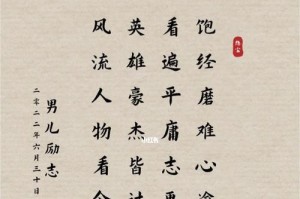 饱经磨难心
看遍平庸志
英雄豪杰皆
风流人物看今
男儿励志
二零二二年六月三十日